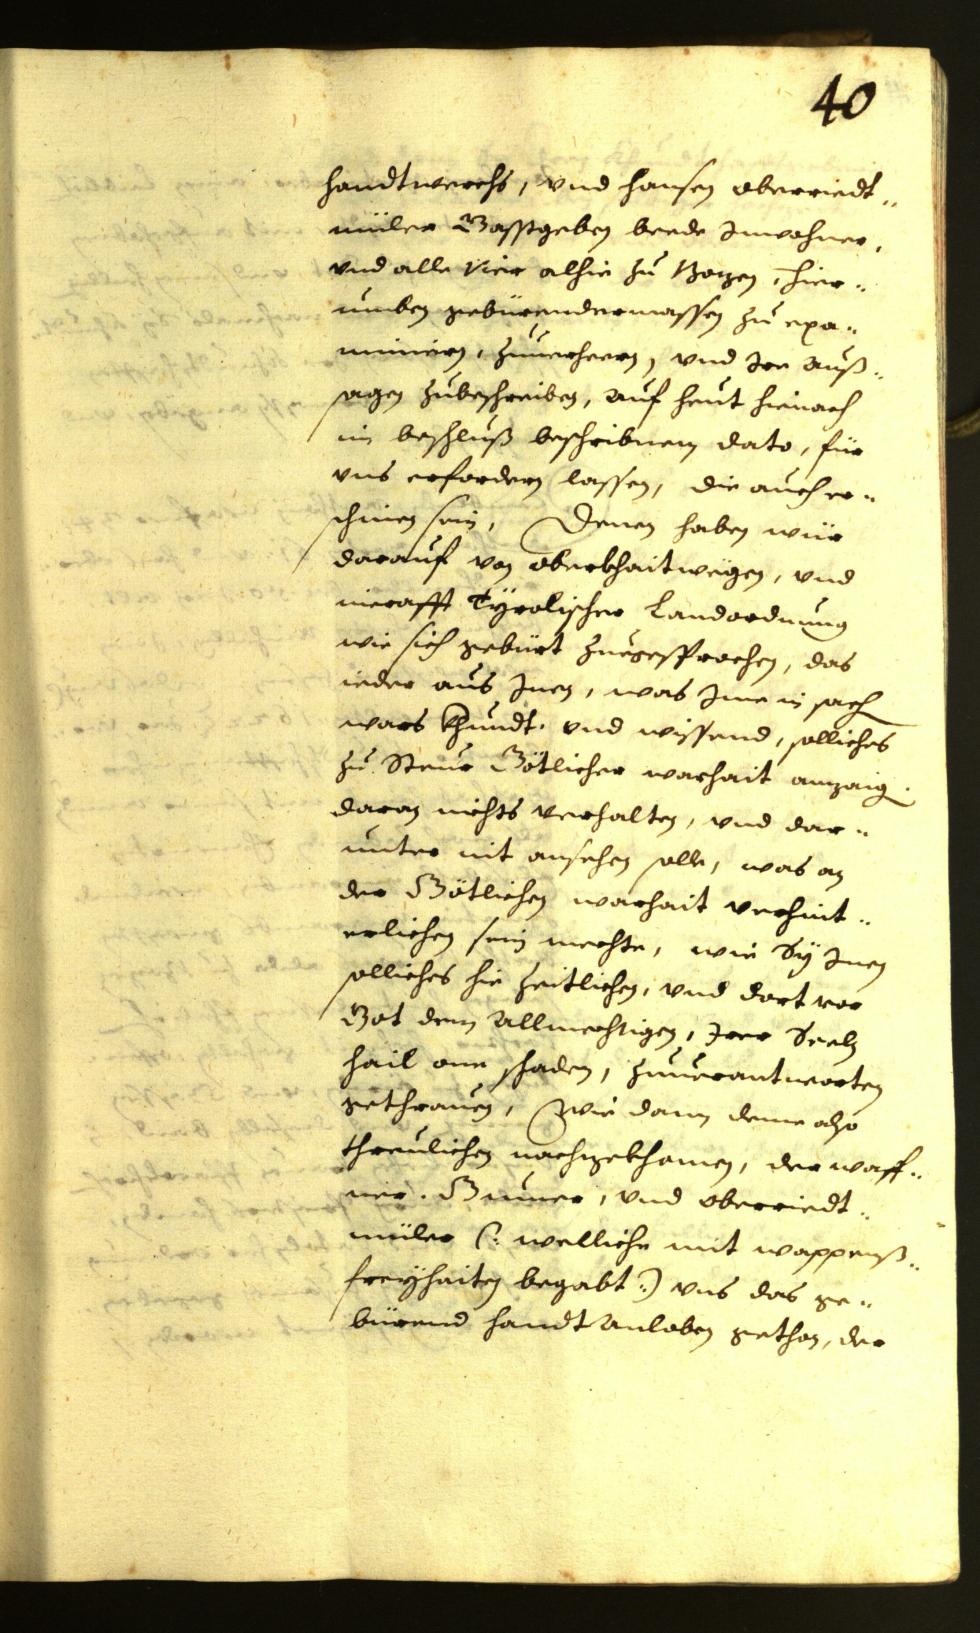 40
handtwerchs, vnd hansen oberriedt„
müler Gasstgeben beede Inwohner,
vnd alle vier alhie zu Bozen, hier„
umben gebürendermassen zu exa„
miniern, zuuerheern, vnd Ire auß„
sagen zubeschreiben, auf heut hienach
in beschluß beschribnem dato, für
vns erfordern lassen, die auch er„
schinen sein, Denen haben wür
darauf von oberkhait wegen, vnd
in crafft Tÿrolischer Landordnung
wie sich gebürt zuegesprochen, das
ieder aus Inen, was Ime in sach
wars khundt, vnd wissend, solliches
zu Steur Götlicher warhait anzaig
daran nichts verhalten, vnd dar„
unter nit ansehen solle, was an
der Götlichen warhait verhint„
erlichen sein mechte, wie Sÿ Inen
solliches hie zeitlichen, vnd dort vor
Got dem Allmechtigen, Irer Seeln
hail one schaden, zuuerantworten
gethrauen, wie dann deme also
threulichen nachgekhomen, der waff„
ner. Gumer, vnd oberriedt„
müler (: welliche mit wappenß„
freÿhaiten begabt :) vns das ge„
bürend handt anloben gethon, der